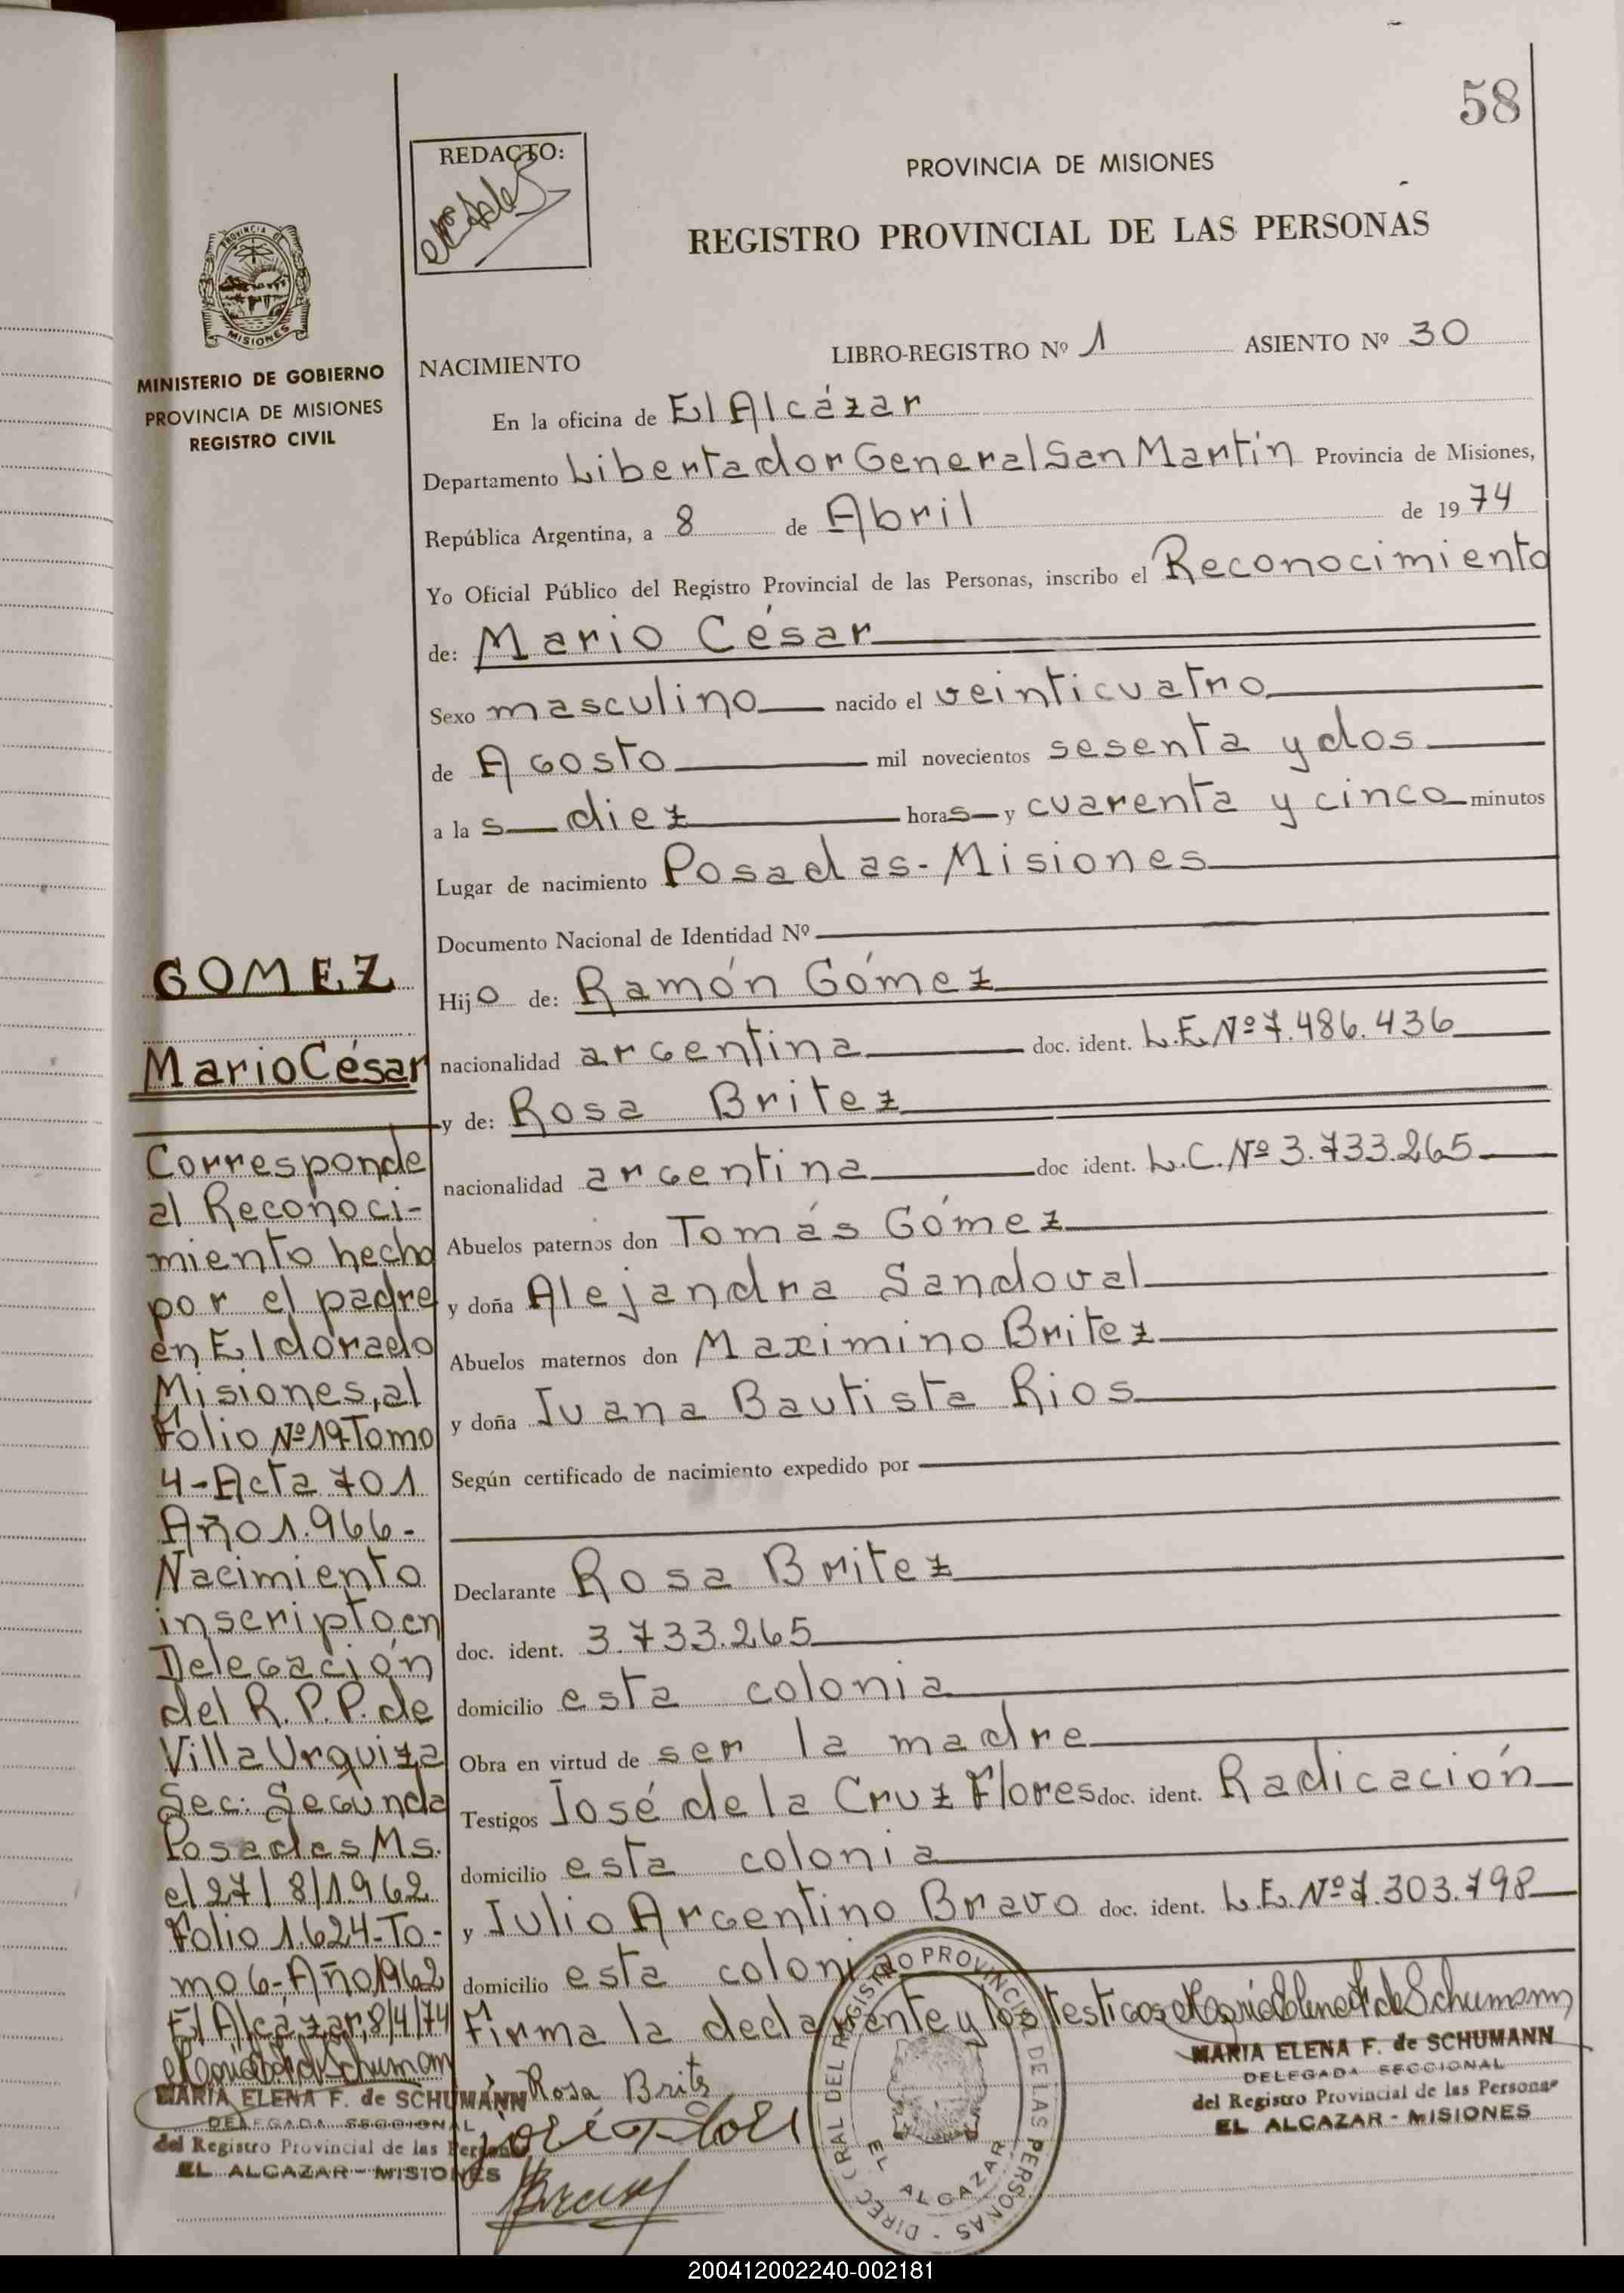 58
REDACTO:
PROVINCIA DE MISIONES
REGISTRO PROVINCIAL DE LAS PERSONAS
PROVINCIA DE
MISIONES
MINISTERIO DE GOBIERNO
PROVINCIA DE MISIONES
REGISTRO CIVIL
NACIMIENTO LIBRO-REGISTRO Nº 1 ASIENTO Nº 30
En la oficina de El Alcázar
Departamento Libertador General San Martín Provincia de Misiones,
República Argentina, a 8 de Abril de 1974
Yo Oficial Público del Registro Provincial de las Personas, inscribo el Reconocimiento
de: Mario César
Sexo masculino nacido el veinticuatro
de Agosto mil novecientos sesenta y dos
a la s diez horas y cuarenta y cinco minutos
Lugar de nacimiento Posadas-Misiones
Documento Nacional de Identidad Nº
Hijo de: Ramón Gómez
nacionalidad argentina doc. ident. L.E. Nº 7.486.436
y de: Rosa Britez
nacionalidad argentina doc ident. L.C. Nº 3.733.265
Abuelos paternos don Tomás Gómez
y doña Alejandra Sandoval
Abuelos maternos don Maximino Britez
y doña Juana Bautista Rios
Según certificado de nacimiento expedido por
Declarante Rosa Britez
doc. ident. 3.733.265
domicilio esta colonia
Obra en virtud de ser la madre
Testigos José de la Cruz Flores doc. ident. Radicación
domicilio esta colonia
y Julio Argentino Bravo doc. ident. L.E. Nº 7.303.798
domicilio esta colonia
Firma la declarante y los testigos
GOMEZ
Mario César
Corresponde
al Reconoci-
miento hecho
por el padre
en Eldorado
Misiones, al
Folio Nº 19-Tomo
4-Acta 701
Año 1.966-
Nacimiento
inscripto en
Delegación
del R.P.P. de
Villa Urquiza
Sec: Segunda
Posadas Ms.
el 27/8/1962
Folio 1.624-To-
mo 6-Año 1962
El Alcázar, 8/4/74
MARIA ELENA F. de SCHUMANN
DELEGADA SECCIONAL
del Registro Provincial de las Personas
EL ALCAZAR - MISIONES
Rosa Brits
José Flores
MARIA ELENA F. de SCHUMANN
DELEGADA SECCIONAL
del Registro Provincial de las Personas
EL ALCAZAR - MISIONES
DEL REGISTRO PROVINCIAL DE LAS PERSONAS
EL ALCAZAR
200412002240-002181